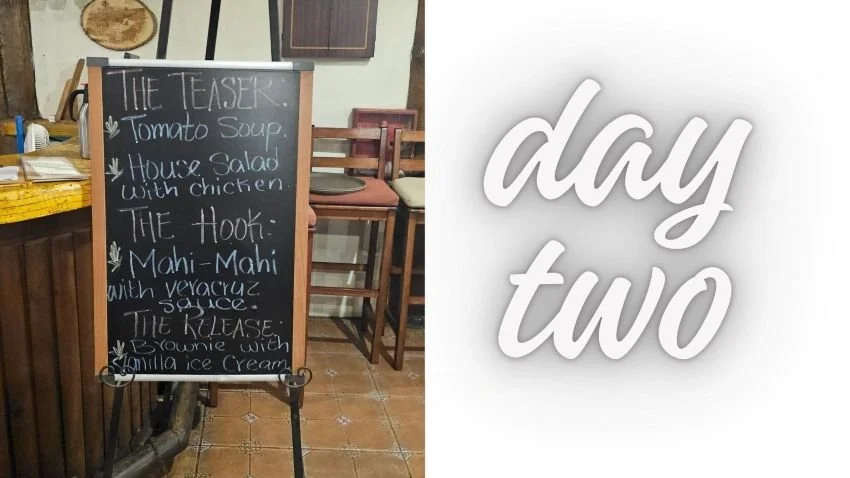 THE TEASER:
Tomato Soup.
House Salad
with chicken.
THE HOOK:
Mahi-Mahi
with veracruz
sauce.
THE RELEASE:
Brownie with
Vanilla ice Cream
day
two